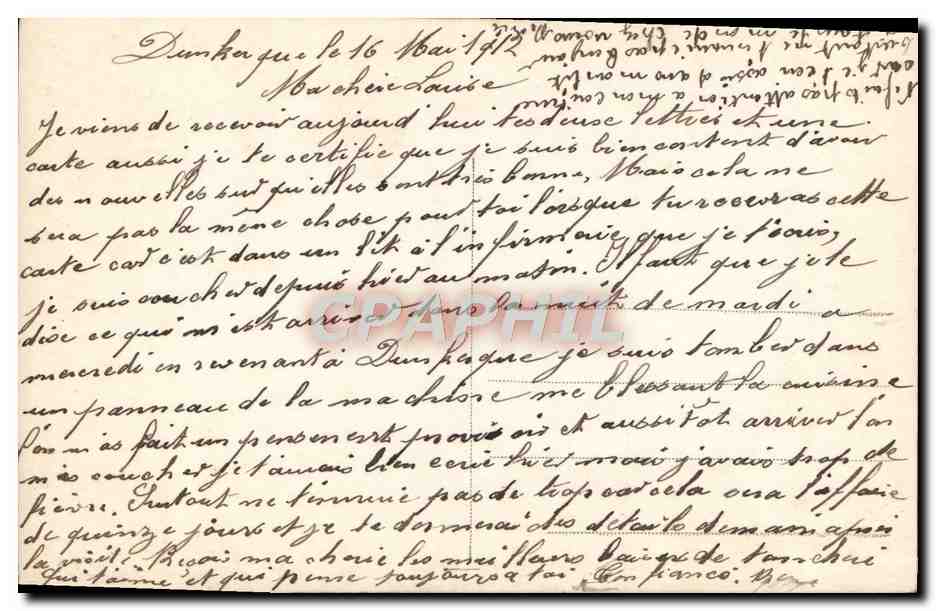 Dunkerque le 16 Mai 1912
Ma chère Louise
Je viens de recevoir aujourd hui tes deuse lettres et une
carte aussi je te certifie que je suis bien content d'avoir
des nouvelles sur qu'illes sont très bonne, Mais cela ne
sera pas la même chose pour toi lorsque tu recevras cette
carte car c'est dans un lit à l'infirmerie que je t'écris,
je suis coucher depuis hier au matin. Il faut que je te
dise ce qui m'est arriver dans la nuit de mardi a
mercredi en revenant à Dunkerque je suis tomber dans
un panneau de la machine me blessant la cuisine
l'on m'as fait un pensement provisoir et aussitôt arriver l'on
m'as coucher je t'aurais bien ecrit hier mais j'avais trop de
fièvre. Surtout ne t'ennuie pas de trop car cela sera l'affaire
de quinze jours et je te donnerai des détails demain apres
la visite. Reçois ma cherie les meilleurs baisers de ton cheri
qui t'aime et qui pense toujours a toi. Confiance.
N'fais pas attention a mon écriture
car je t'ecri assis dans mon lit
surtout ne t'ennuie pas bonjour
a tous le monde chez vous
CPAPHIL